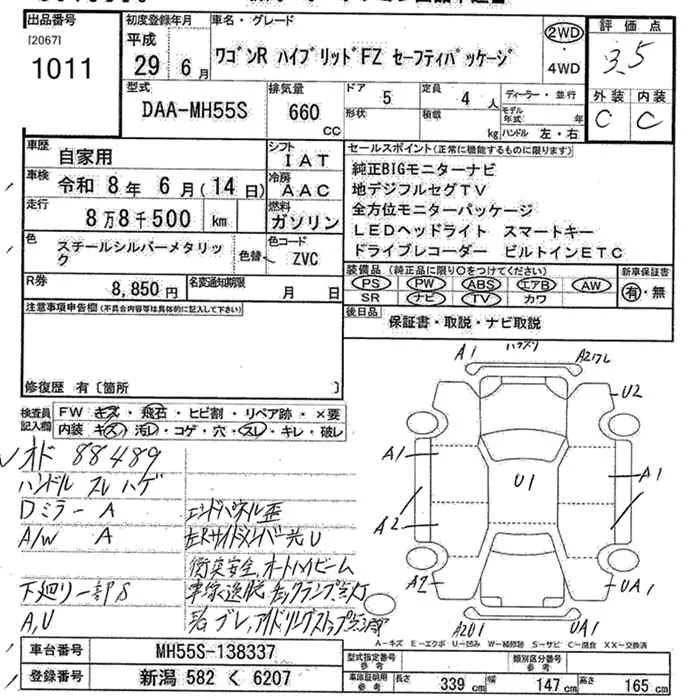 出品番号
[2067]
1011
初度登録年月
平成
29年 6月
車名・グレード
ワゴンR ハイブリッドFZ セーフティパッケージ
2WD
・
4WD
評価点
3.5
外装 内装
C C
型式
DAA-MH55S
排気量
660
CC
ドア
5
定員
4人
形状
積載
kg
ディーラー・並行
モデル年式 年
ハンドル 左・右
車歴
自家用
シフト
IAT
車検
令和 8年 6月(14日)
冷房
AAC
走行
8万8千500 km
燃料
ガソリン
色
スチールシルバーメタリック
色替
色コード
ZVC
R券
8,850円
名変通知期限
月 日
セールスポイント(正常に機能するものに限ります)
純正BIGモニターナビ
地デジフルセグTV
全方位モニターパッケージ
LEDヘッドライト スマートキー
ドライブレコーダー ビルトインETC
装備品(純正品に限り○をつけてください)
PS PW ABS エアB AW
SR ナビ TV カワ
新車保証書
有・無
後日品
保証書・取説・ナビ取説
注意事項申告欄(不具合内容等は具体的に記入して下さい)
修復歴 有〔箇所 〕
検査員
記入欄
FW キズ・飛石・ヒビ割・リペア跡・×要
内装 キズ・汚レ・コゲ・穴・スレ・キレ・破レ
オド 88489
ハンドル スレ ハゲ
Dミラー A
エンドパネル歪
A/W A
左Rサイドメンバー先U
衝突安全,オートハイビーム
下廻り一部S
A,U
A1
A2
U2
A1
A1
U1
A2
A2
UA1
A2U1
UA1
A-キズ E-エクボ U-凹み W-補修跡 S-サビ C-腐食 XX-交換済
車台番号
MH55S-138337
登録番号
新潟 582 く 6207
型式指定番号
参考
類別区分番号
参考
車庫証明用
参考
長さ
339cm
幅
147cm
高さ
165cm